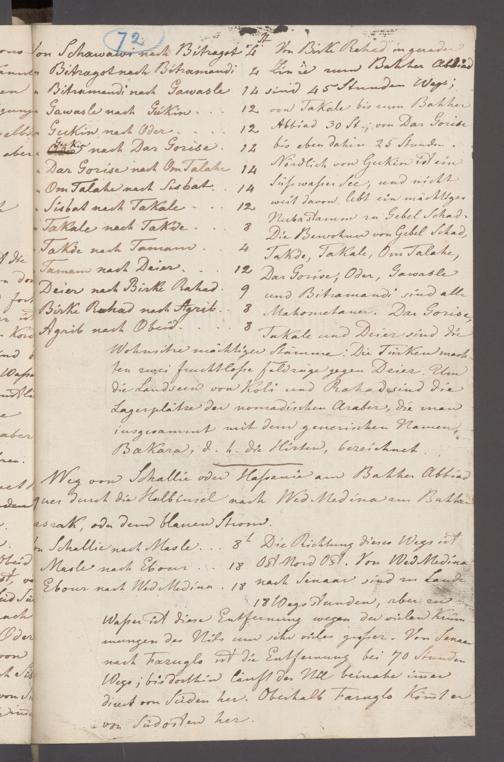 72
Von Schawaw nach Bitragot 4
" Bitragot nach Bitramandi 4
" Bitramandi nach Gawasle 14
Gawasle nach Gukin . . . 12
Gukin nach Oder . . . . 12
nach Dar Gorise . . 12
" Dar Gorise nach Om Talahe 14
" Om Talahe nach Sisbat . . 14
" Sisbat nach Takale . . . 12
" Takale nach Takde . . . 8
Takde nach Tamam . . . 4
Tamam nach Deier . . . . 12
Deier nach Birke Rahad . 9
Birke Rahad nach Agrib . . 8
Agrib nach Obeid . . . . 8
Von Birke Rahad in gerader
Linie zum Bahher Abbiad
sind 45 Stunden Wegs;
von Takale bis zum Bahher
Abbiad 30 St.; von Dar Gorise
bis eben dahin 25 Stunden.
Nördlich von Gukin ist ein
Süsswasser See, und nicht
weit davon lebt ein mächtiger
zu Gebel Schad.
Die Bewohner von Gebel Schad,
Takde, Takale, Om Talahe,
Dar Gorise, Oder, Gawasle
und Bitramandi sind alle
Mahometaner. Dar Gorise,
Takale und Deier sind die
Wohnsitze mächtiger Stämme: Die Türken mach
ten zwei fruchtlose Feldzüge gegen Deier. Um
die Landseen von Koli und Rahad sind die
Lagerplätze der nomadischen Araber, die man
insgesammt mit dem generischen Namen,
Bakara, d. h. die Hirten, bezeichnet.
Weg von Schallie oder Hassanie am Bahher Abbiad
quer durch die Halbinsel nach Wed Medina am Bahher
asrak, oder dem blauen Strom.
Von Schallie nach Masle . . . 8 h
Masle nach Ebour . . . 18
Ebour nach Wed Medina . 18
Die Richtung dieses Wegs ist
Ost Nord Ost. Von Wed Medina
nach Senaar sind zu Lande
18 Wegstunden, aber zu
Wasser ist diese Entfernung wegen der vielen Krüm
mungen des Nils um sehr vieles grösser. Von Senaar
nach Fazuglo ist die Entfernung bei 70 Stunden
Wegs; bis dorthin läuft der Nil beinahe imer
direct von Süden her. Oberhalb Fazuglo kömt er
von Südosten her.